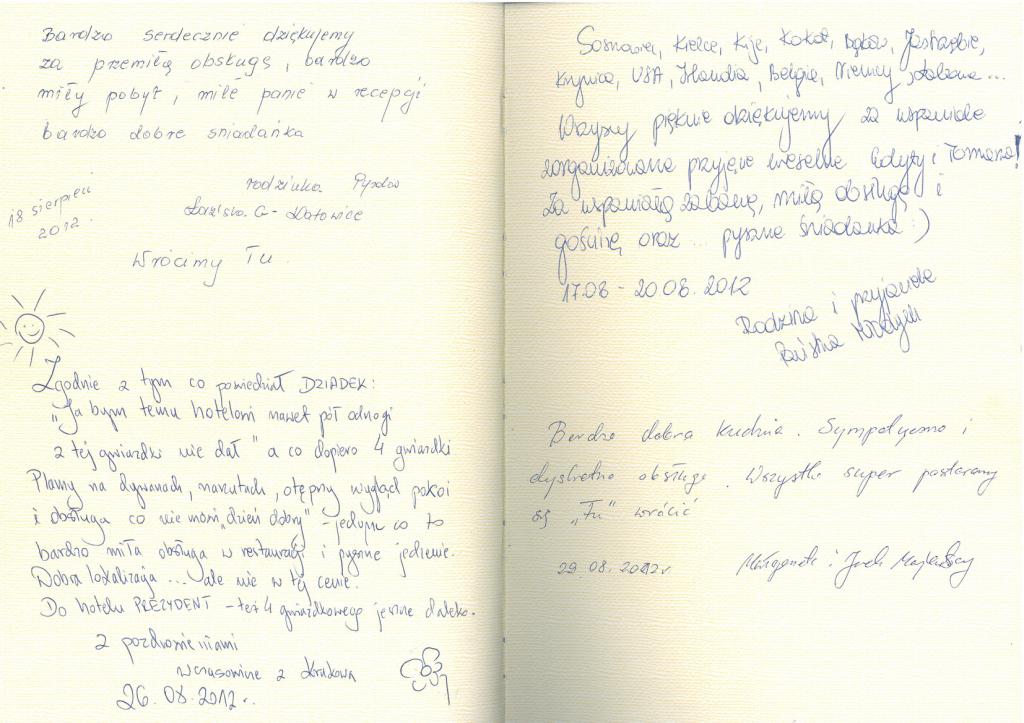 Bardzo serdecznie dziękujemy
za przemiłą obsługę, bardzo
miły pobyt, miłe panie w recepcji
bardzo dobre śniadanka
rodzinka
- Katowice
18 sierpień
2012.
Wrócimy Tu.
Zgodnie z tym co powiedział DZIADEK:
"Ja bym temu hotelowi nawet pół odnogi
z tej gwiazdki nie dał" a co dopiero 4 gwiazdki
Plamy na dywanach, narzutach, otępny wygląd pokoi
i obsługa co nie mówi "dzień dobry" - jedyne co to
bardzo miła obsługa w restauracji i pyszne jedzenie.
Dobra lokalizacja ... ale nie w tej cenie.
Do hotelu PREZYDENT - też 4 gwiazdkowego jeszcze daleko.
z pozdrowieniami
wczasowicze z Krakowa
26.08.2012r.
Sosnowiec, Kielce, Kije, Kokot, Jastrzębie,
Krynica, USA, Irlandia, Belgia, Niemcy ...
Wszyscy pięknie dziękujemy za wspaniale
zorganizowane przyjęcie weselne Edyty i Tomasza!
Za wspaniałą zabawę, miłą obsługę i
gościnę oraz ... pyszne śniadanka :)
17.08 - 20.08.2012
Rodzina i przyjaciele
Państwa Młodych
Bardzo dobra kuchnia. Sympatyczna i
dyskretna obsługa. Wszystko super postaramy
się "Tu" wrócić
29.08.2012r
Małgorzata i Jacek